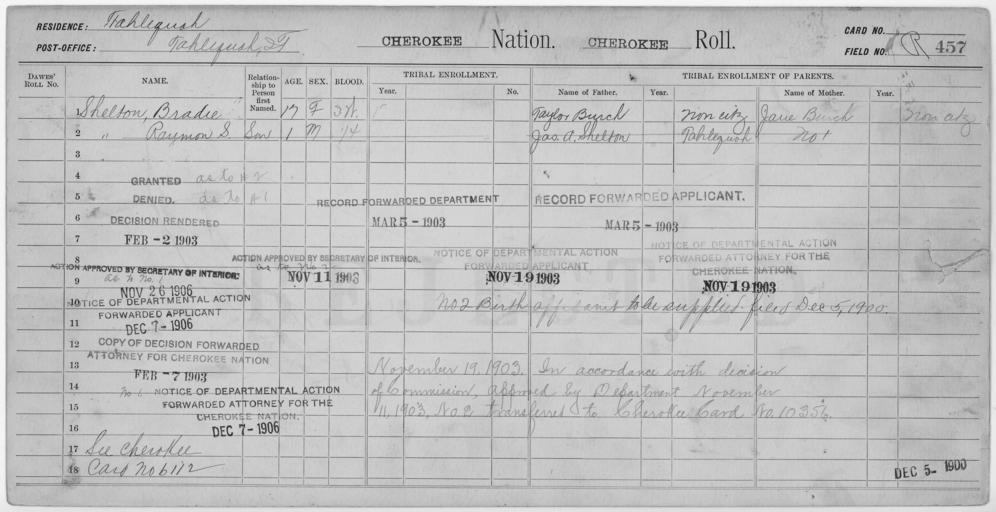 RESIDENCE: Tahlequah
POST-OFFICE: Tahlequah, I.T.
CHEROKEE Nation. CHEROKEE Roll.
CARD NO.
FIELD NO. R 457
DAWES' ROLL NO. NAME. Relationship to Person first Named. AGE. SEX. BLOOD. TRIBAL ENROLLMENT. TRIBAL ENROLLMENT OF PARENTS.
Year. No. Name of Father. Year. Name of Mother. Year.
1 Shelton, Bradie 17 F I.W. Taylor Burch Non citz Jane Burch Non citz
2 " Raymon S. Son 1 M 1/4 Jas. A. Shelton Tahlequah No 1
3
4 GRANTED as to # 2
5 DENIED. as to # 1 RECORD FORWARDED DEPARTMENT RECORD FORWARDED APPLICANT.
6 DECISION RENDERED MAR 5 - 1903 MAR 5 - 1903
7 FEB - 2 1903 NOTICE OF DEPARTMENTAL ACTION FORWARDED APPLICANT NOTICE OF DEPARTMENTAL ACTION FORWARDED ATTORNEY FOR THE CHEROKEE NATION.
8 ACTION APPROVED BY SECRETARY OF INTERIOR.
as to No. 2
ACTION APPROVED BY SECRETARY OF INTERIOR.
9 as to No. 1 NOV 11 1903 NOV 19 1903 NOV 19 1903
NOV 26 1906
10 NOTICE OF DEPARTMENTAL ACTION No 2 Birth affidavit to be supplied. filed Dec 5, 1900.
FORWARDED APPLICANT
11 DEC 7 - 1906
12 COPY OF DECISION FORWARDED
13 ATTORNEY FOR CHEROKEE NATION November 19, 1903. In accordance with decision
FEB - 7 1903
14 No. 1 NOTICE OF DEPARTMENTAL ACTION of Commission, approved by Department November
15 FORWARDED ATTORNEY FOR THE 11, 1903, No. 2 transferred to Cherokee Card No. 10356.
CHEROKEE NATION.
16 DEC 7 - 1906
17 See Cherokee
18 Card No 6112 DEC 5 - 1900